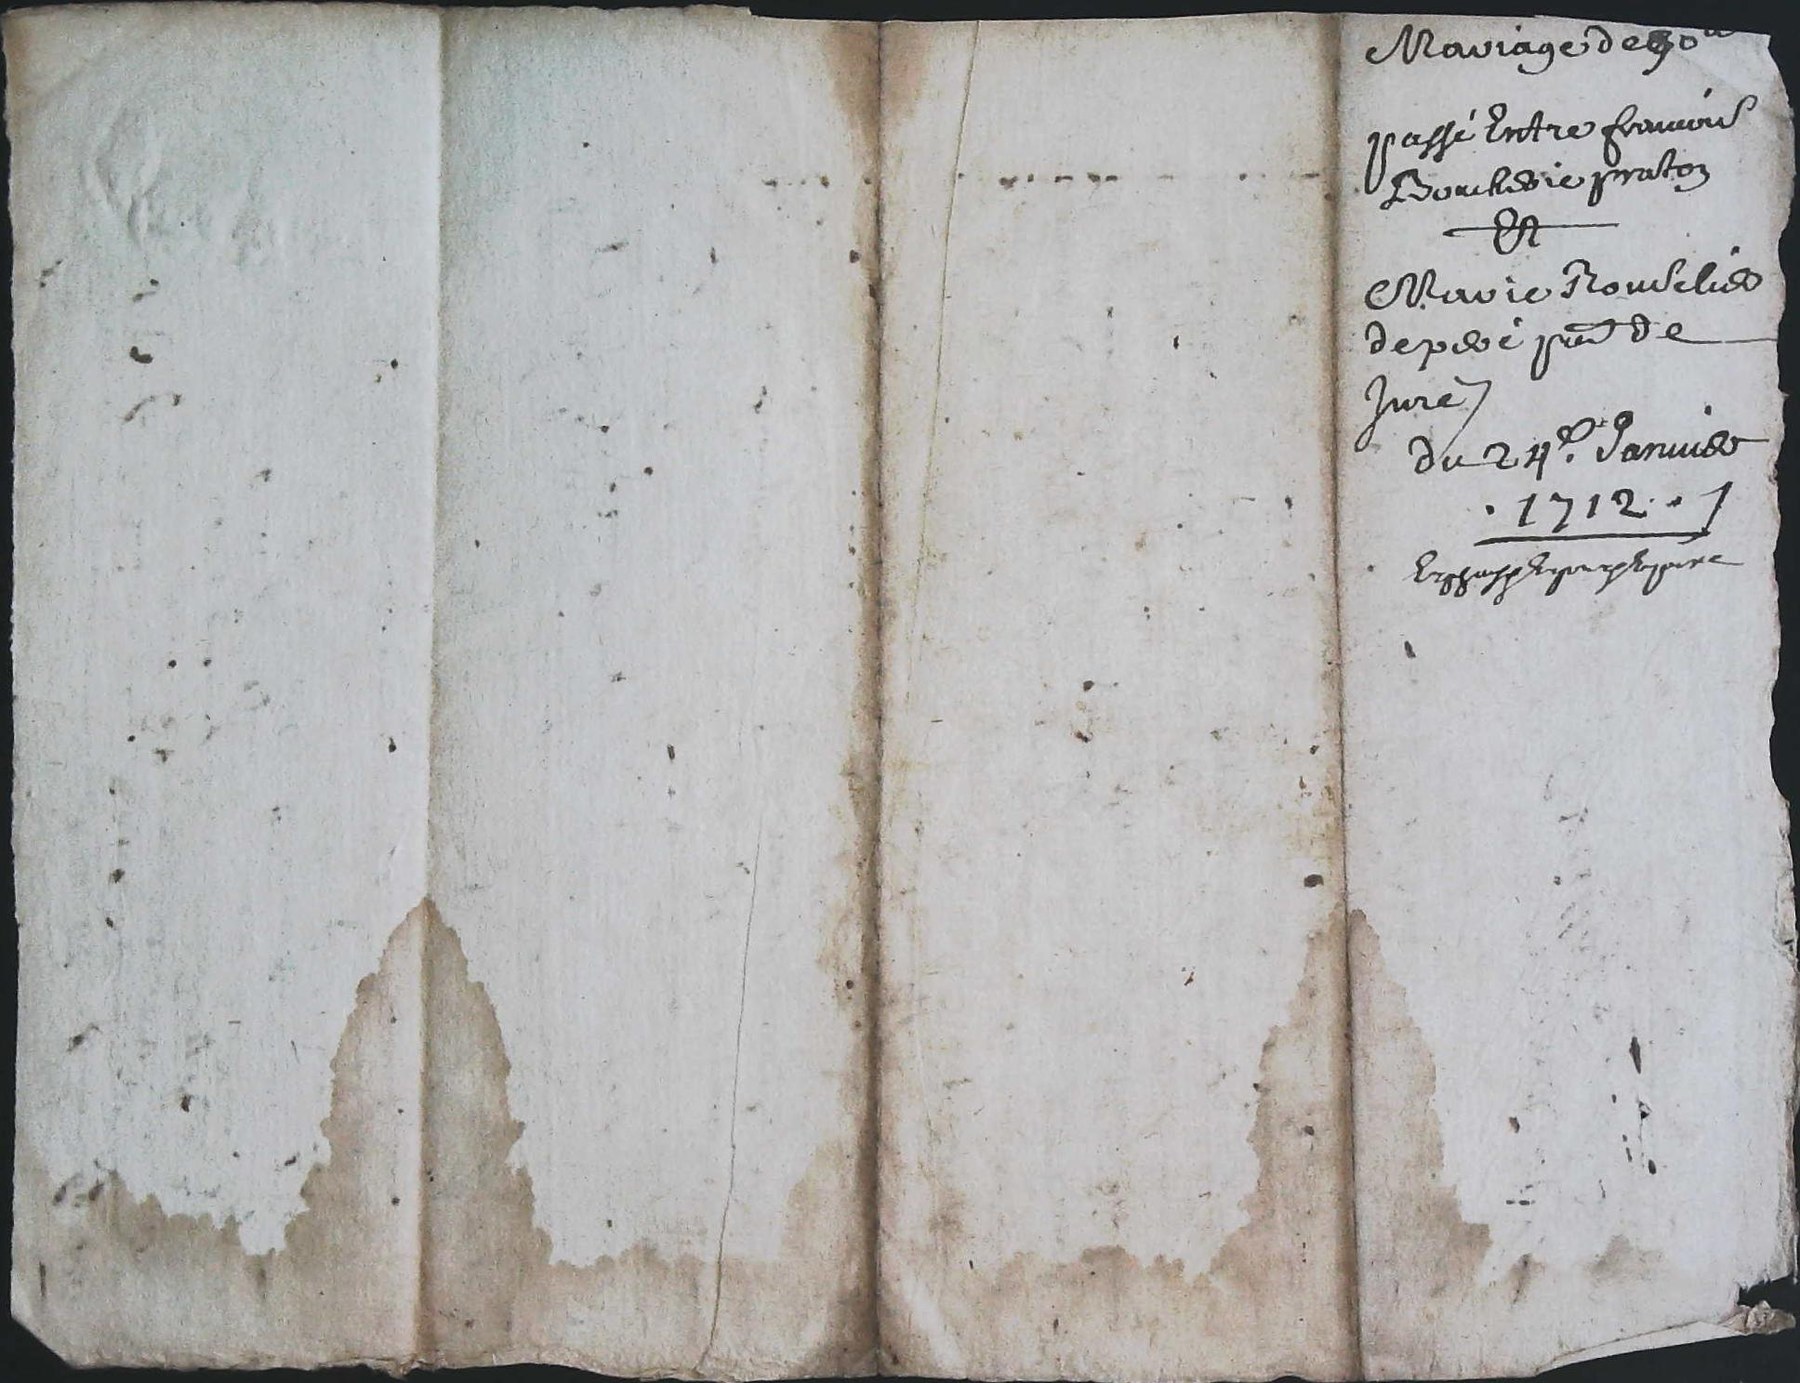 Mariage de 30#
passé Entre francois
Boucherie praton
Et
Marie Rouselier
de par de
Jure
du 24e. Januier
. 1712 .